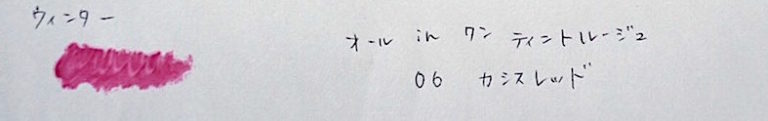 ウィンター
オール in ワン ティントルージュ
06 カシスレッド